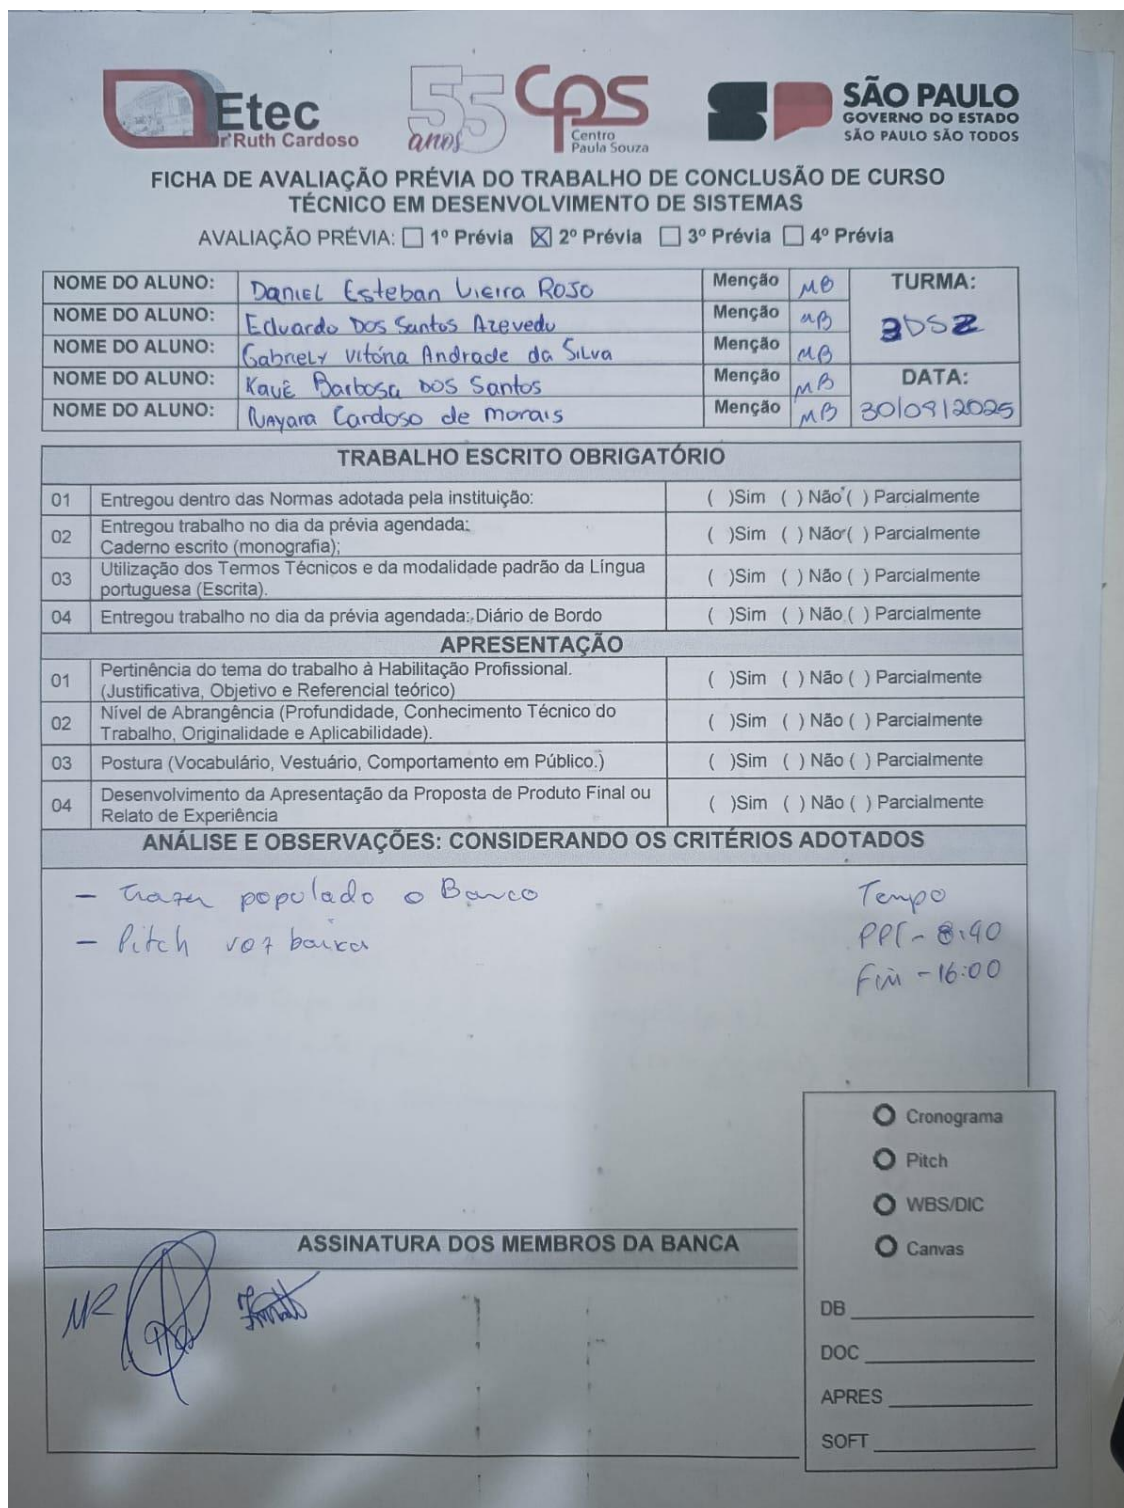 Etec
Drª Ruth Cardoso
55
anos
CPS
Centro
Paula Souza
SP
SÃO PAULO
GOVERNO DO ESTADO
SÃO PAULO SÃO TODOS
FICHA DE AVALIAÇÃO PRÉVIA DO TRABALHO DE CONCLUSÃO DE CURSO
TÉCNICO EM DESENVOLVIMENTO DE SISTEMAS
AVALIAÇÃO PRÉVIA: ☐ 1º Prévia ☒ 2º Prévia ☐ 3º Prévia ☐ 4º Prévia
NOME DO ALUNO: Daniel Esteban Vieira Rojo Menção MB TURMA:
NOME DO ALUNO: Eduardo Dos Santos Azevedo Menção MB 3DS2
NOME DO ALUNO: Gabriely Vitória Andrade da Silva Menção MB
NOME DO ALUNO: Kauê Barbosa dos Santos Menção MB DATA:
NOME DO ALUNO: Nayara Cardoso de Morais Menção MB 30/09/2025
TRABALHO ESCRITO OBRIGATÓRIO
01 Entregou dentro das Normas adotada pela instituição: ( )Sim ( ) Não ( ) Parcialmente
02 Entregou trabalho no dia da prévia agendada:
Caderno escrito (monografia); ( )Sim ( ) Não ( ) Parcialmente
03 Utilização dos Termos Técnicos e da modalidade padrão da Língua
portuguesa (Escrita). ( )Sim ( ) Não ( ) Parcialmente
04 Entregou trabalho no dia da prévia agendada: Diário de Bordo ( )Sim ( ) Não ( ) Parcialmente
APRESENTAÇÃO
01 Pertinência do tema do trabalho à Habilitação Profissional.
(Justificativa, Objetivo e Referencial teórico) ( )Sim ( ) Não ( ) Parcialmente
02 Nível de Abrangência (Profundidade, Conhecimento Técnico do
Trabalho, Originalidade e Aplicabilidade). ( )Sim ( ) Não ( ) Parcialmente
03 Postura (Vocabulário, Vestuário, Comportamento em Público.) ( )Sim ( ) Não ( ) Parcialmente
04 Desenvolvimento da Apresentação da Proposta de Produto Final ou
Relato de Experiência ( )Sim ( ) Não ( ) Parcialmente
ANÁLISE E OBSERVAÇÕES: CONSIDERANDO OS CRITÉRIOS ADOTADOS
- Trazer populado o Banco
- Pitch voz baixa
Tempo
PPT - 8:40
Fim - 16:00
Cronograma
Pitch
WBS/DIC
Canvas
DB
DOC
APRES
SOFT
ASSINATURA DOS MEMBROS DA BANCA